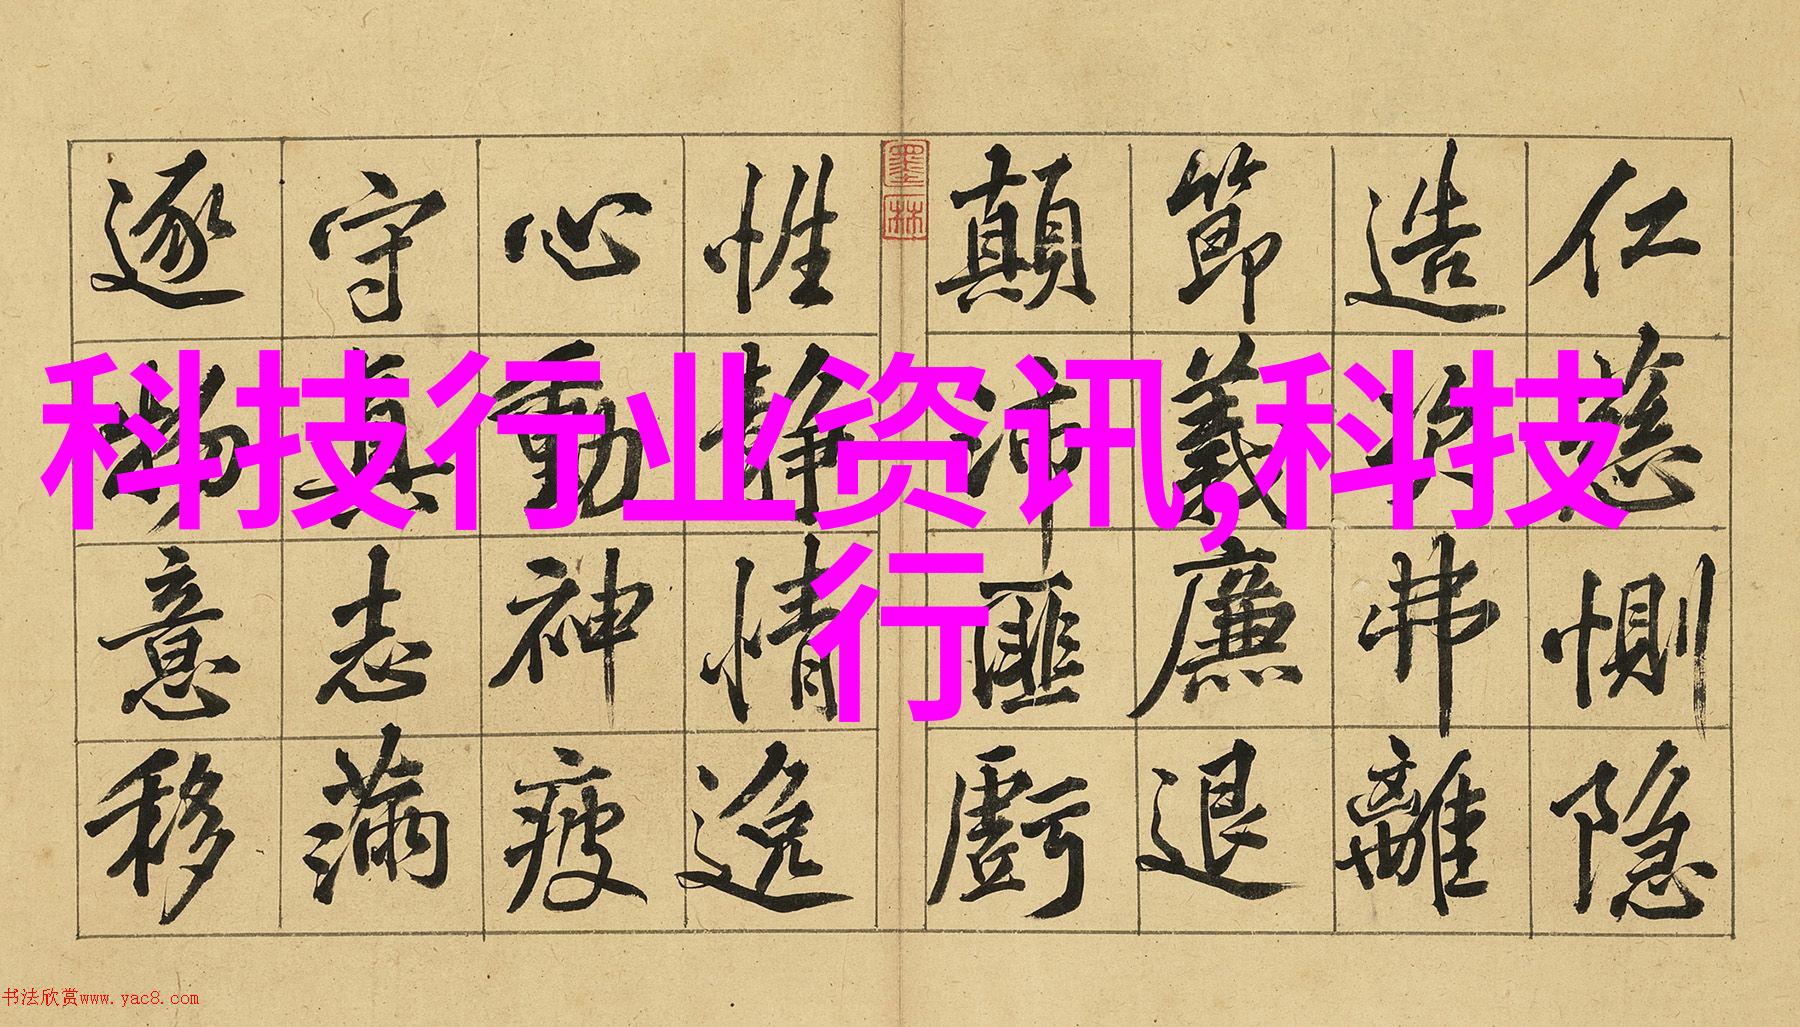 科技行业资讯,科技
行
仁慈惻隐
造次弗離
節義廉退
顛沛匪虧
性静情逸
心動神疲
守真志滿
逐物意移
墨林
书法欣赏www.yac8.com